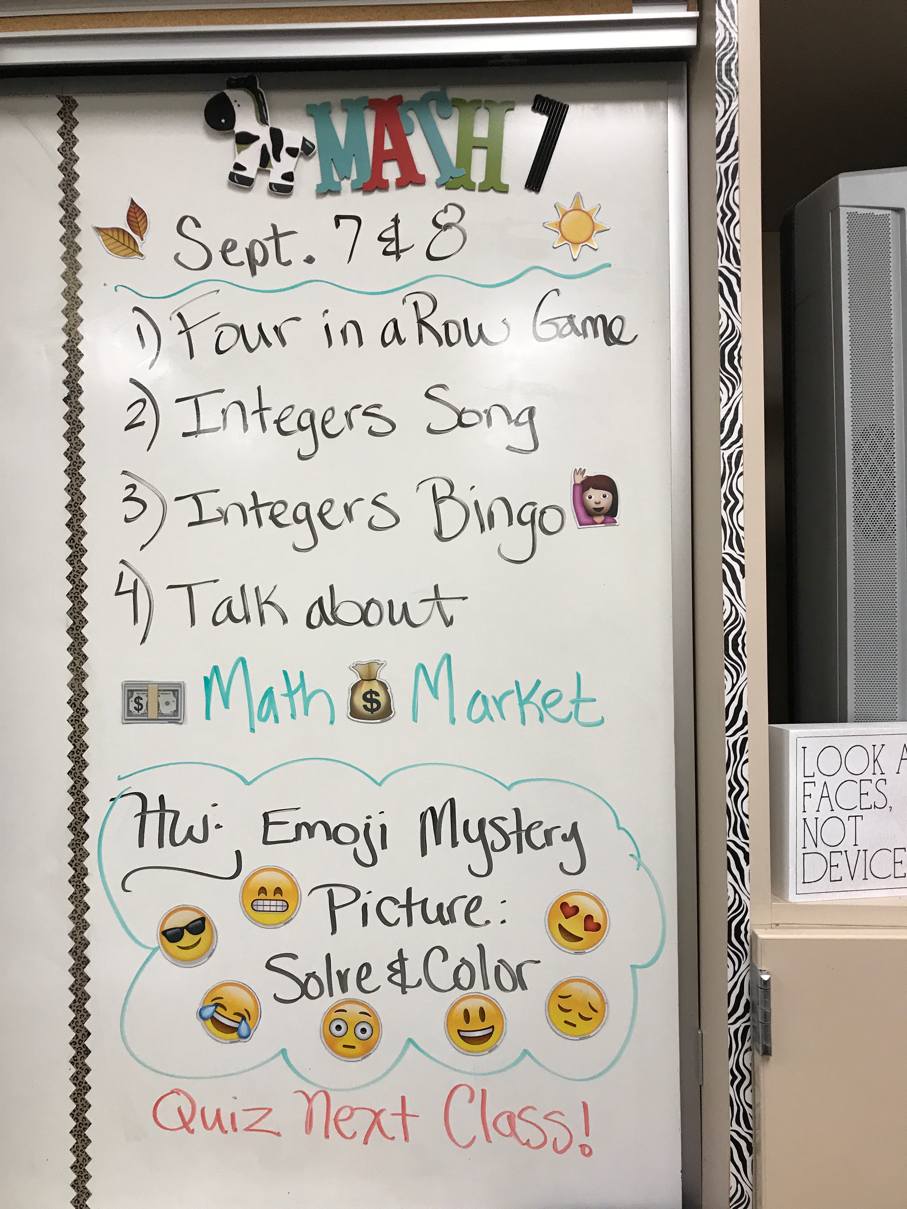 MATH 7
Sept. 7 & 8
1) Four in a Row Game
2) Integers Song
3) Integers Bingo
4) Talk about
Math Market
HW: Emoji Mystery
Picture:
Solve & Color
Quiz Next Class!
LOOK A
FACES,
NOT
DEVICE